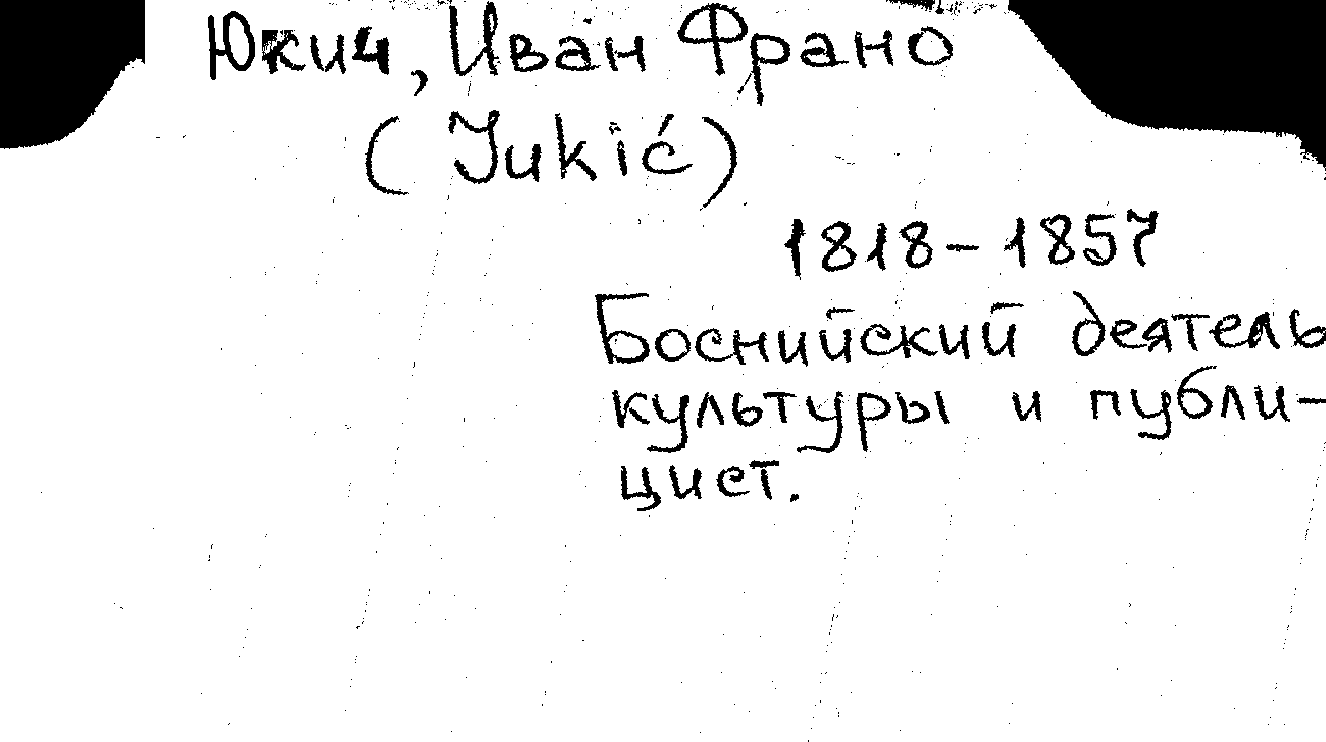 Юкич, Иван Франо
(Jukić)
1818-1857
Боснийский деятель
культуры и публи-
цист.